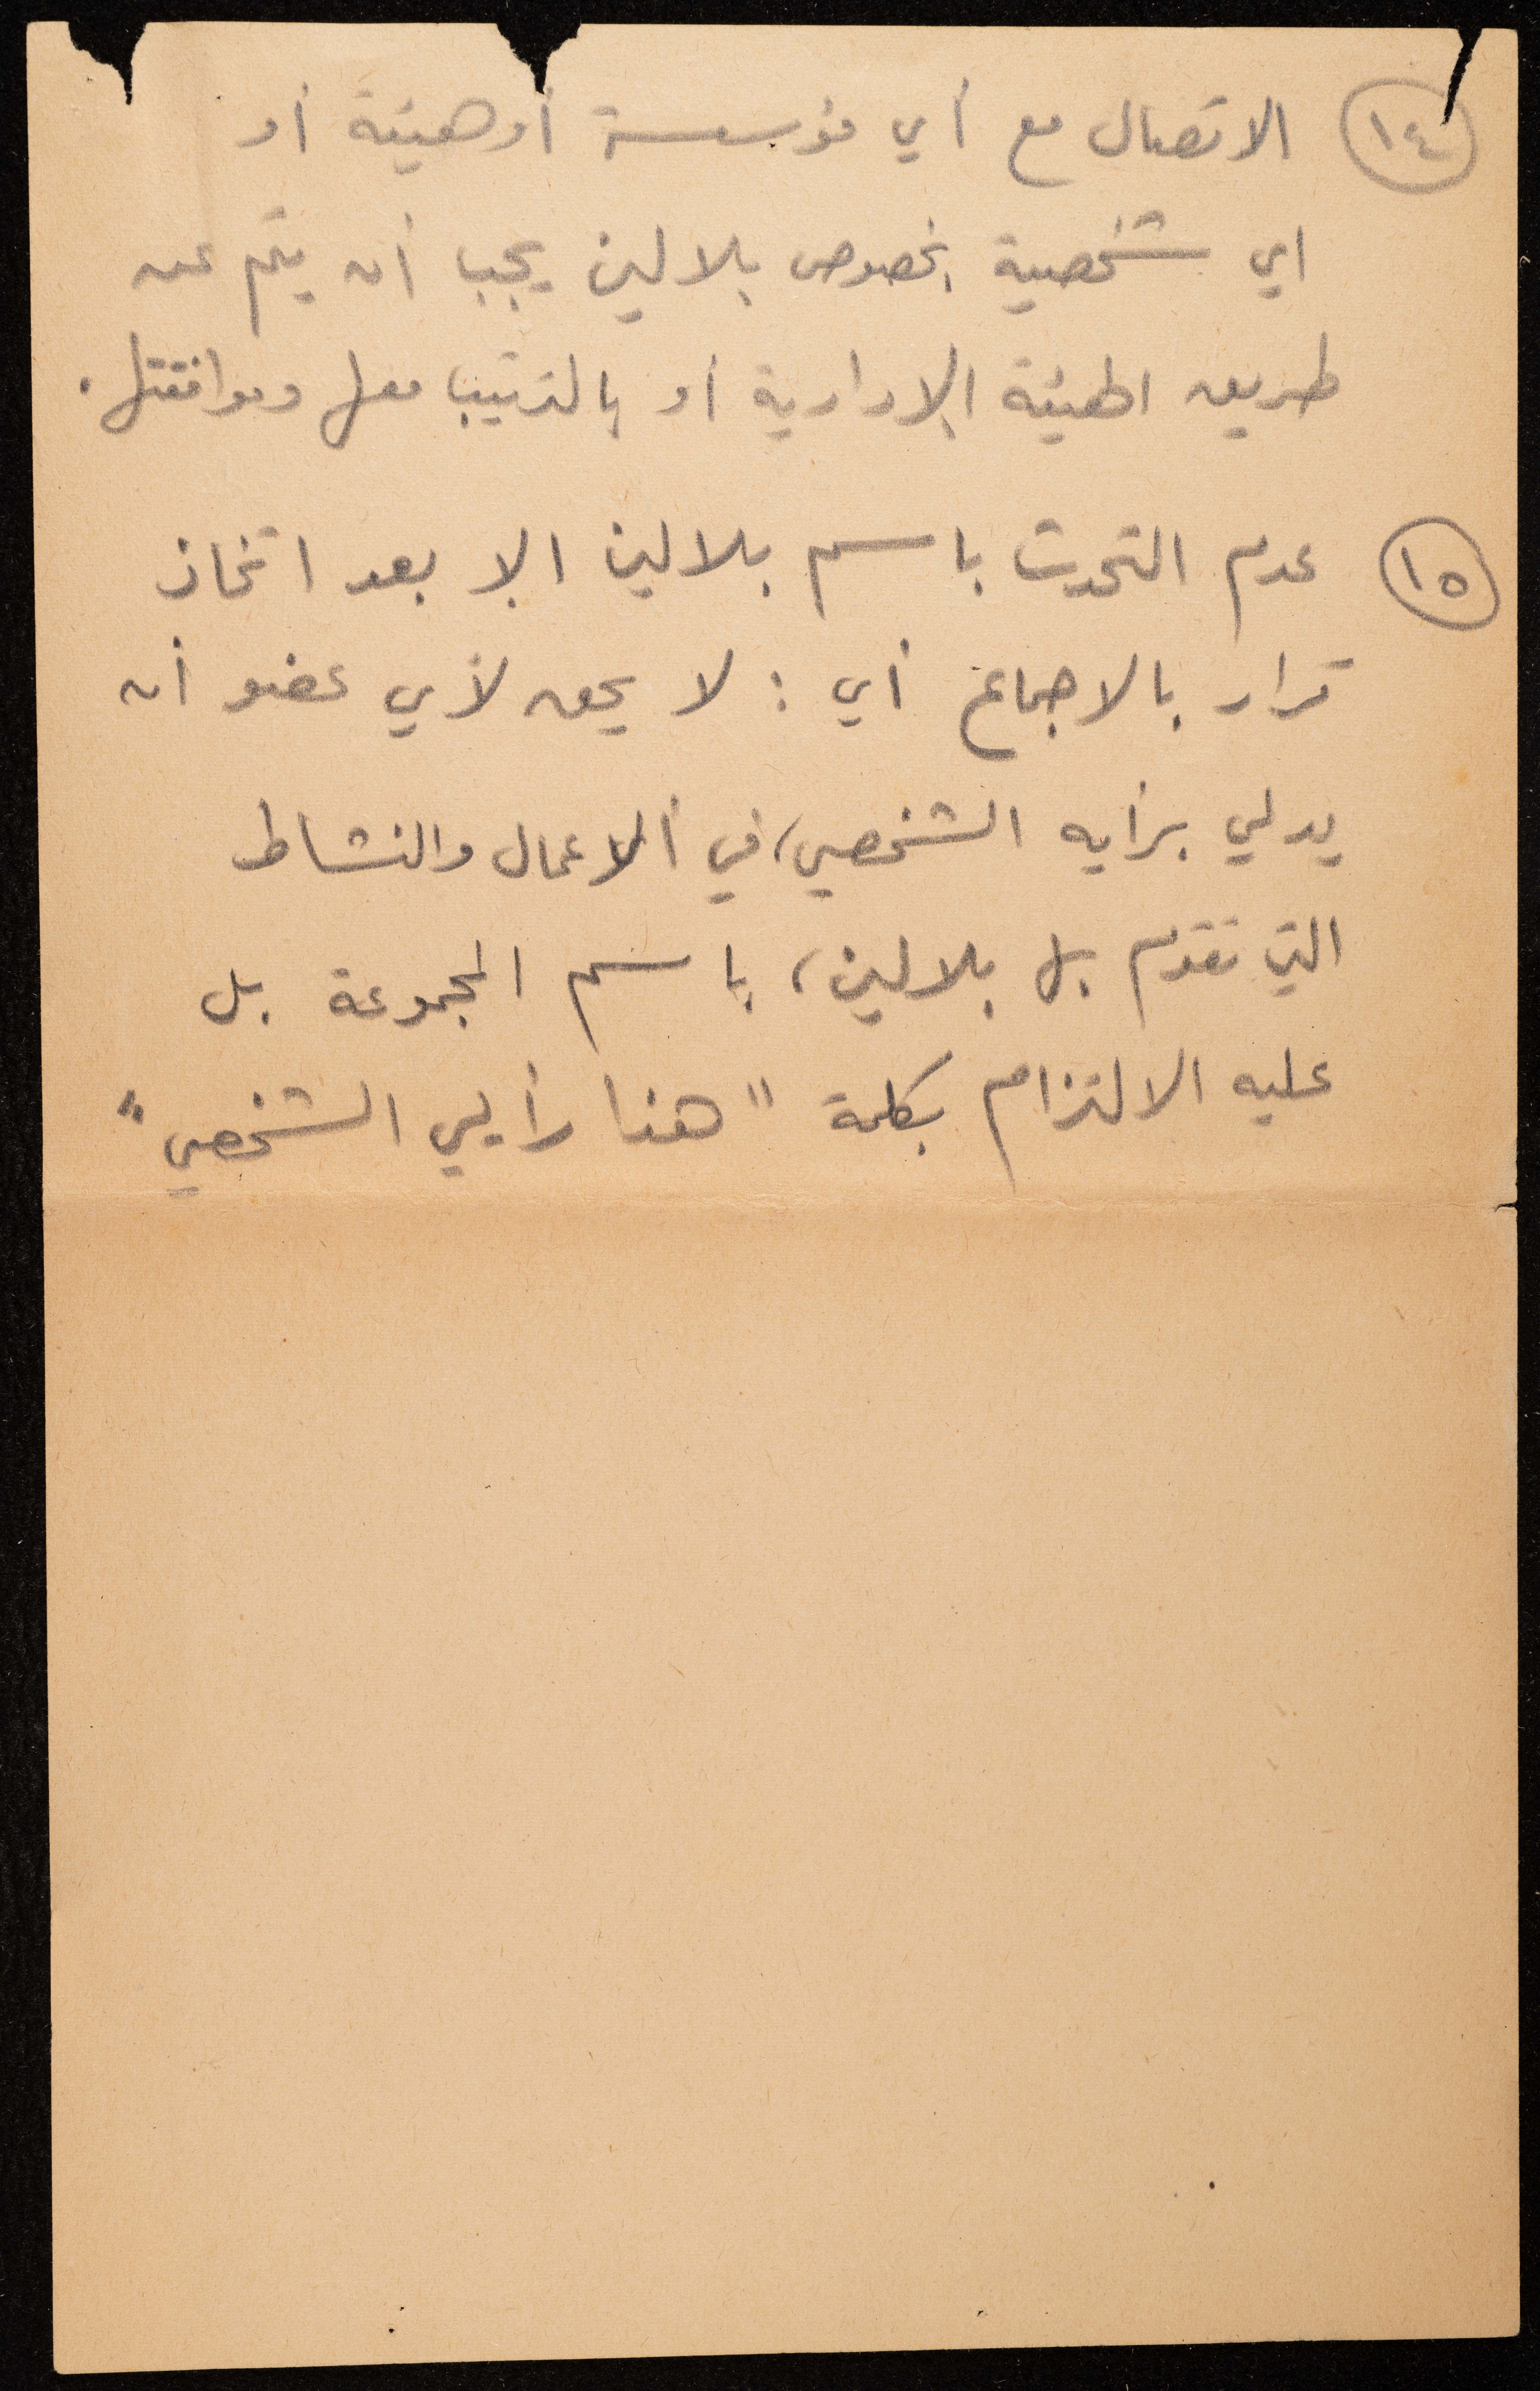 ١٤ الاتصال مع أي مؤسسة أو هيئة أو
اي شخصية بخصوص بلالين يجب أن يتم عن
طريق الهيئة الإدارية أو بالترتيب معها وموافقتها.
١٥ عدم التحدث باسم بلالين الا بعد اتخاذ
قرار بالاجماع أي : لا يحق لأي عضو أن
يدلي برأيه الشخصي، في ألاعمال والنشاط
التي تقوم بها بلالين، باسم المجموعة بل
عليه الالتزام بكلمة "هذا رأيي الشخصي"